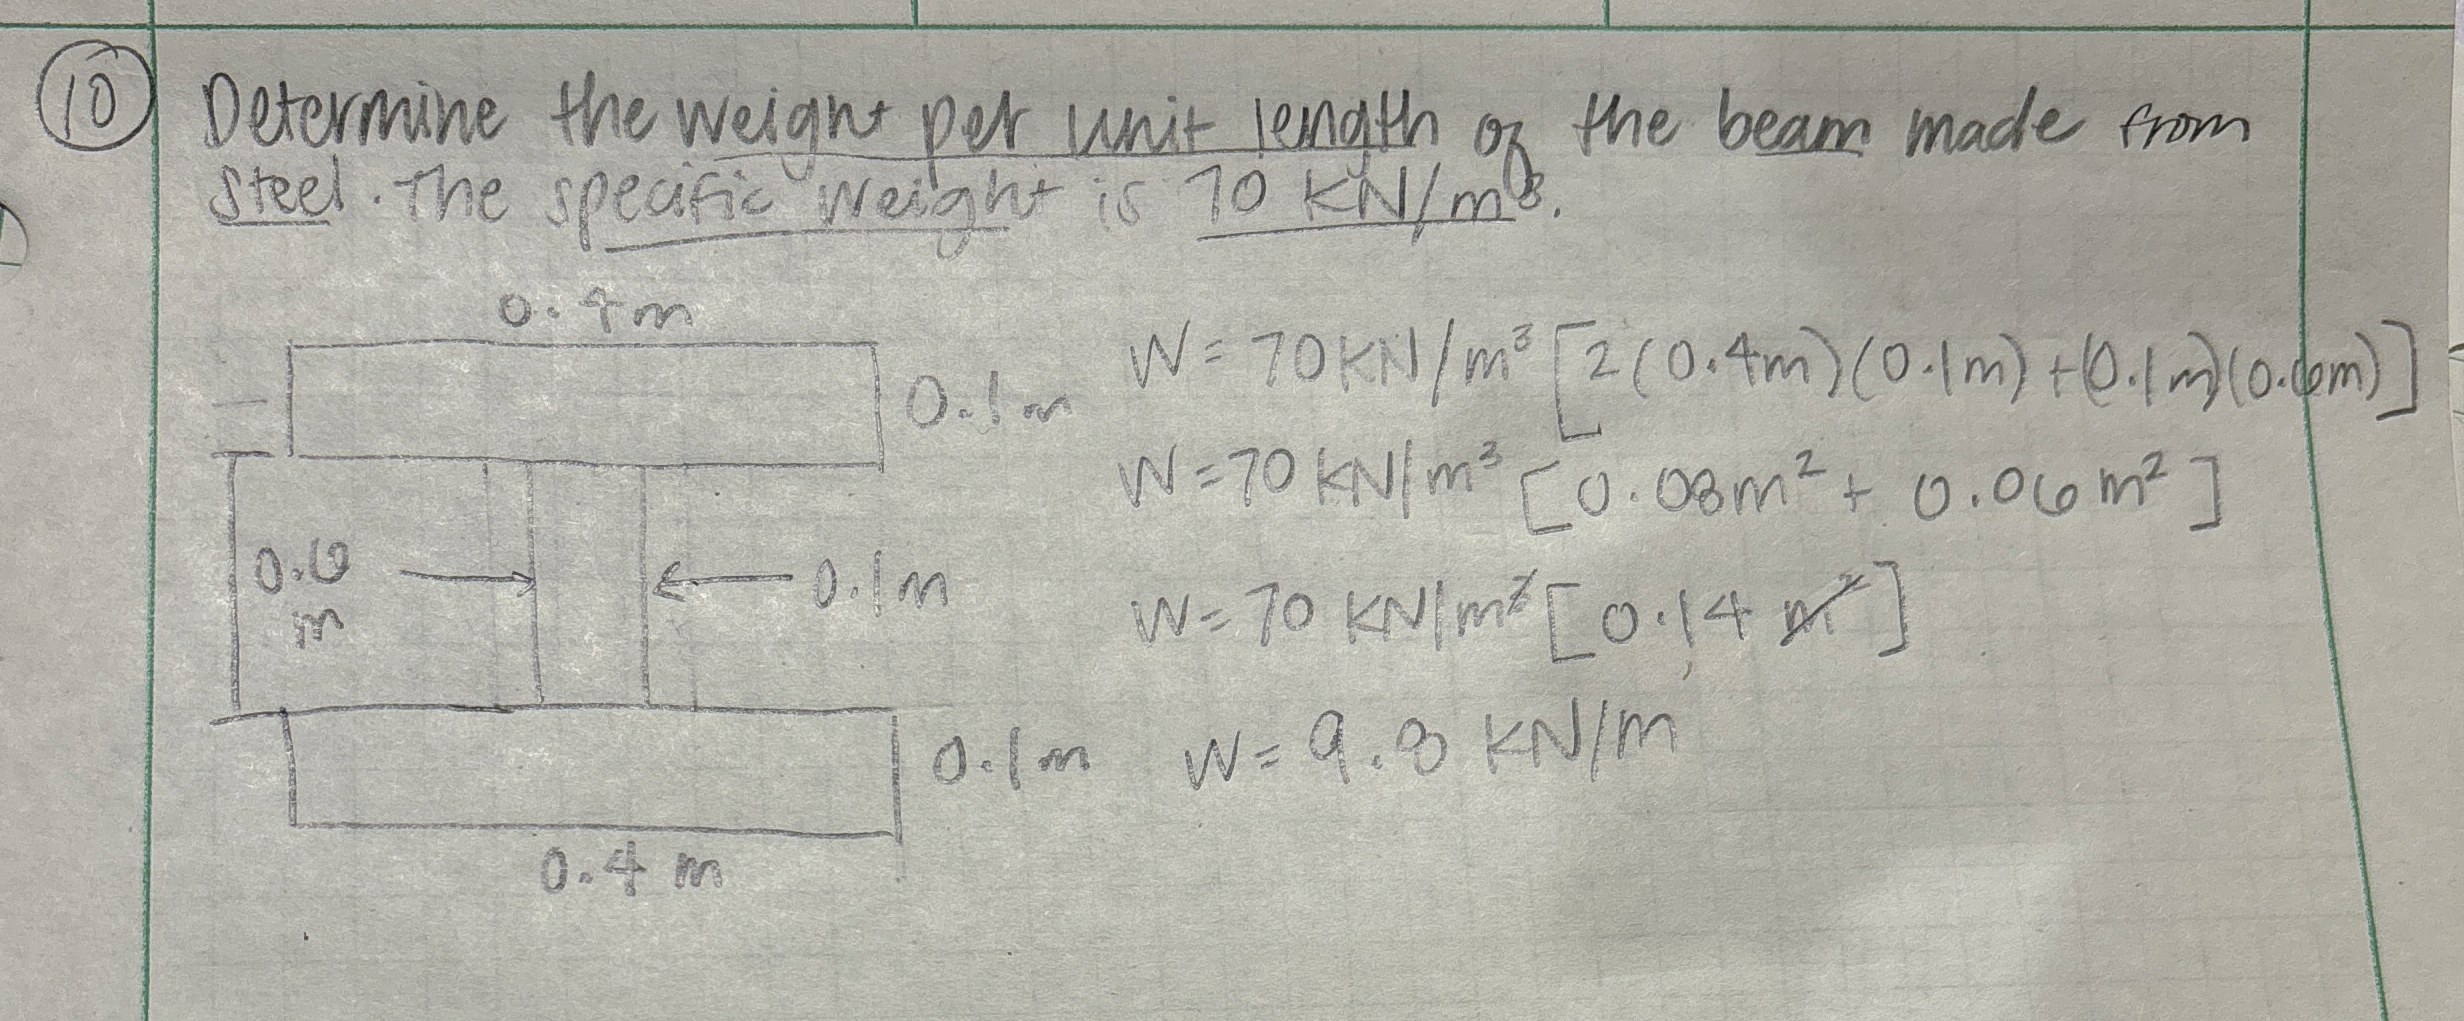 10 Determine the weight per unit length of the beam made from
steel. The specific weight is 70 KN/m³.
0.4m
0.1m
W = 70KN/m³ [2(0.4m)(0.1m) + (0.1m)(0.6m)]
W = 70 KN/m³ [0.08m² + 0.06m²]
0.6
m
0.1m
W = 70 KN/m³ [0.14 m²]
0.1m
W = 9.8 KN/m
0.4 m